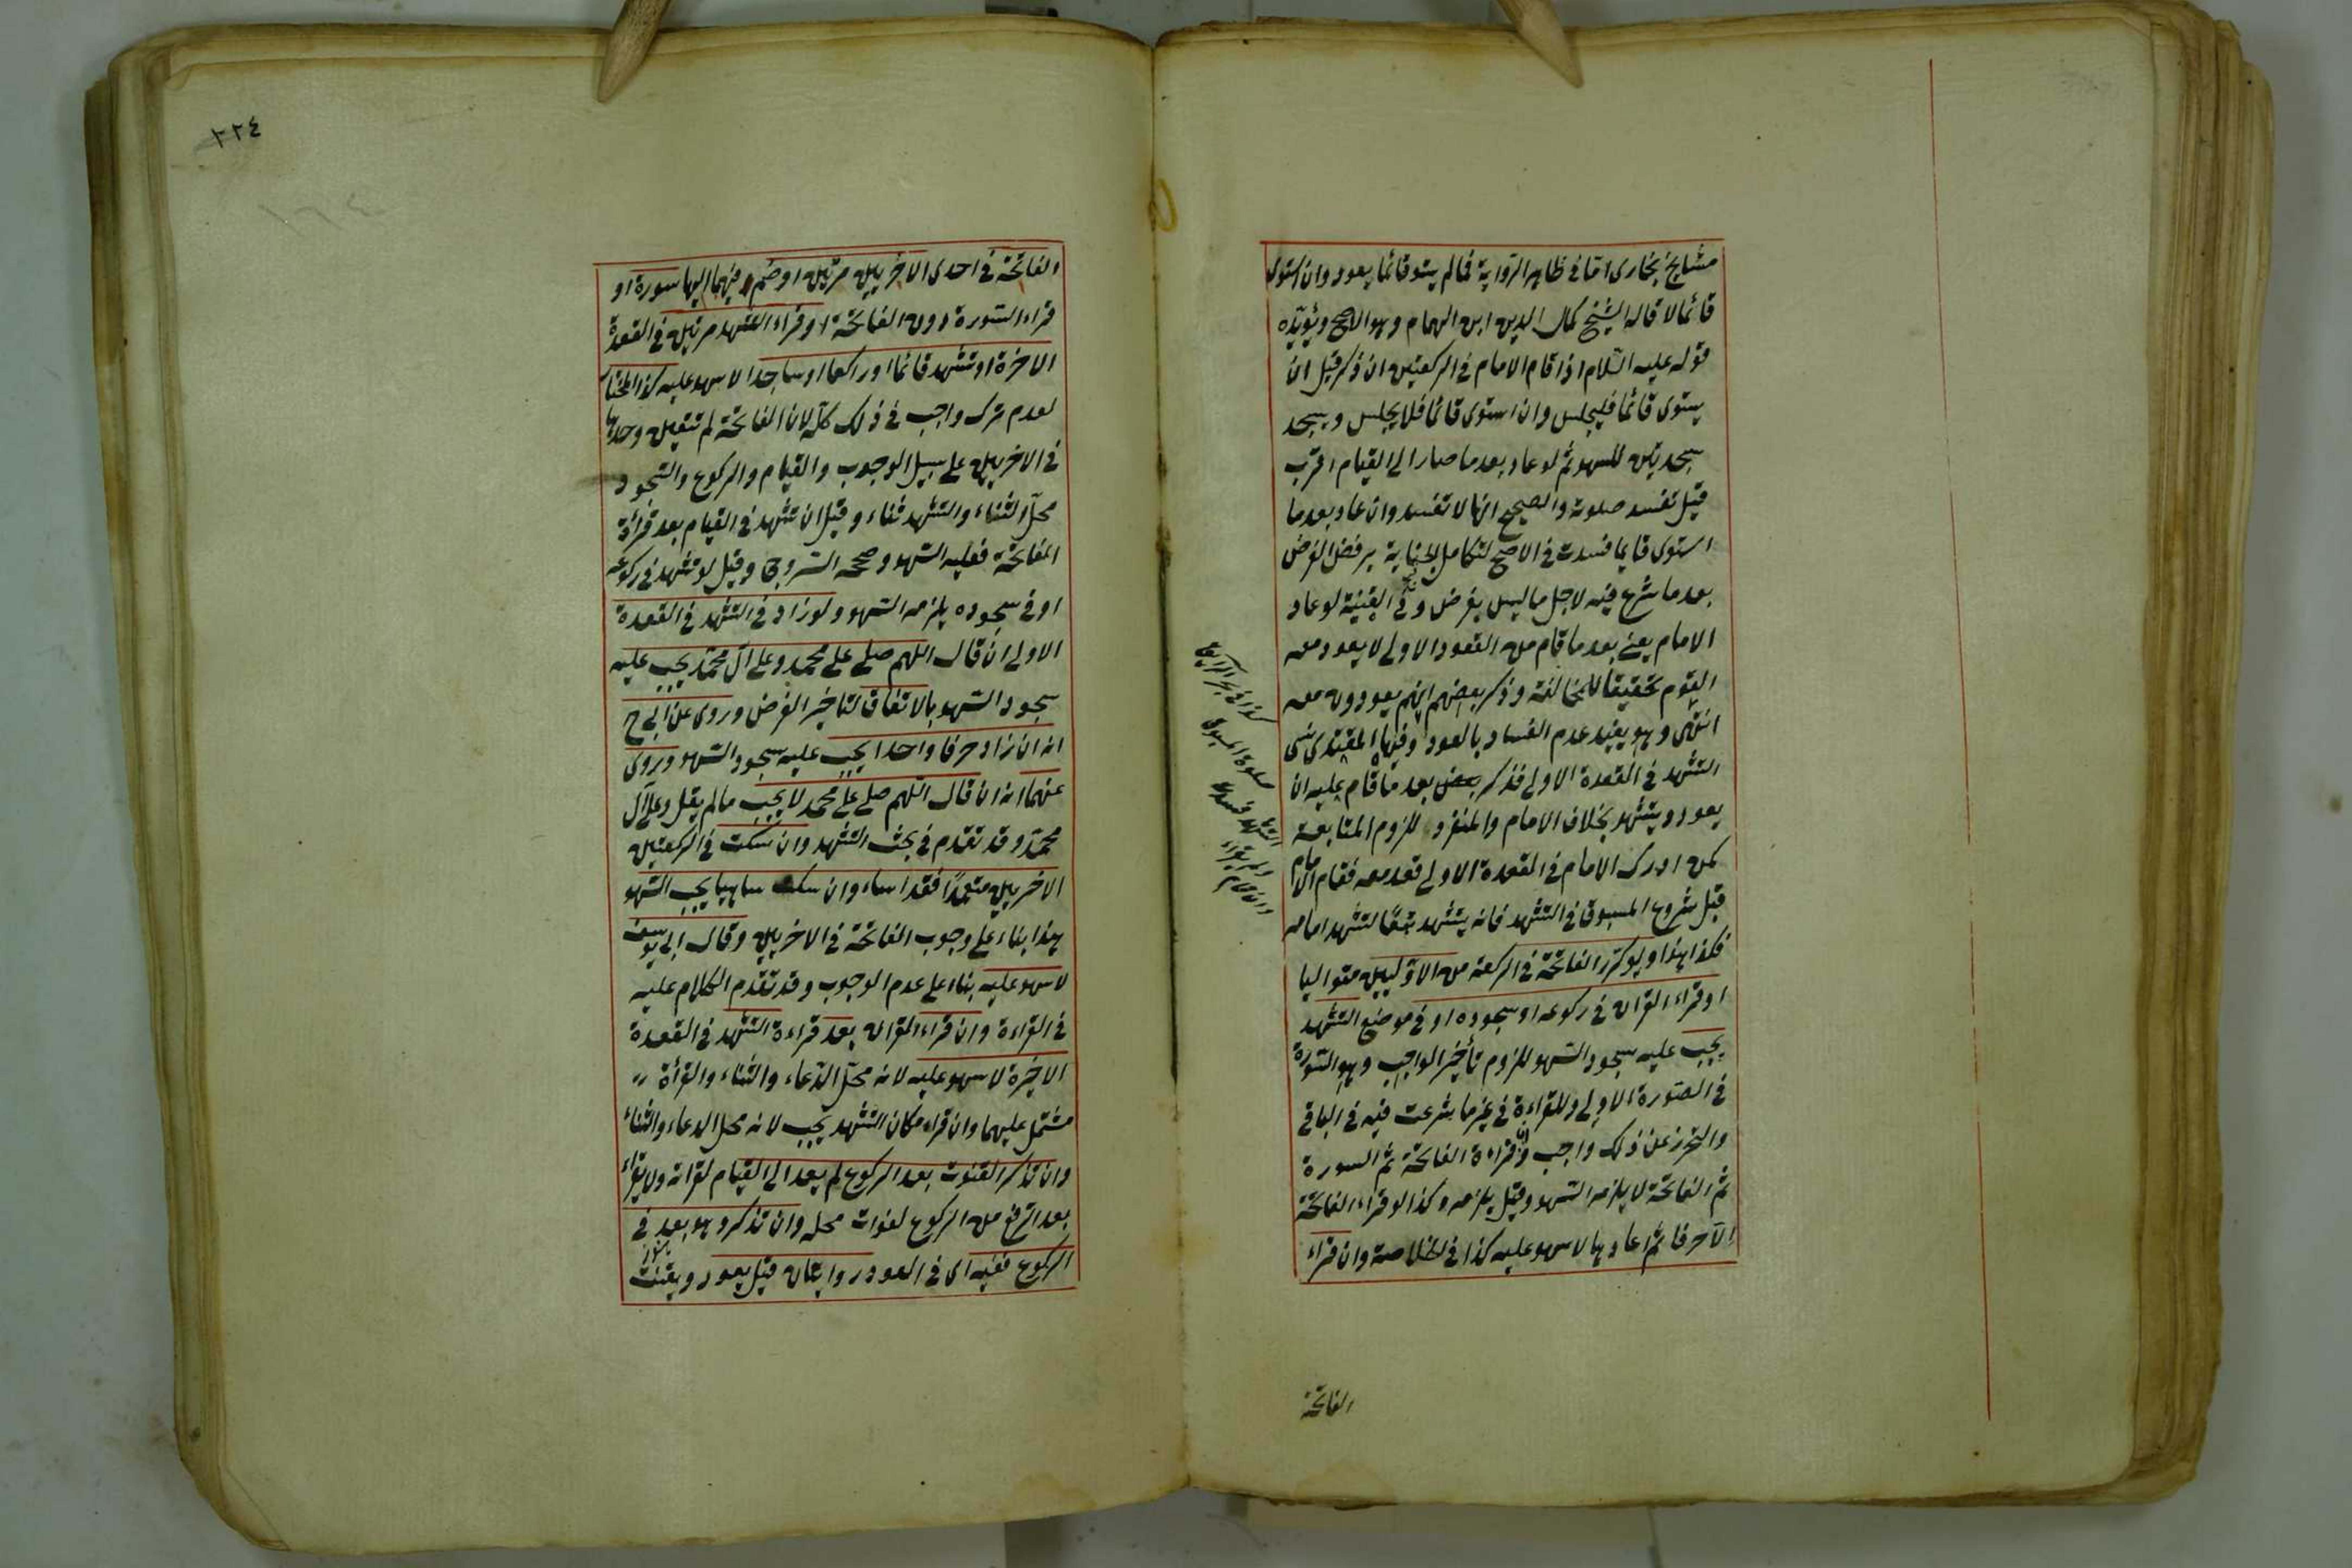 مشايخ بخارى اما فى ظاهر الرواية فمالم يستو قائما يعود وان استوى
قائما لا قاله الشيخ كمال الدين ابن الهمام وهو الاصح ويؤيده
قوله عليه السلام اذا قام الامام فى الركعتين ان ذكر قبل ان
يستوى قائما فليجلس وان استوى قائما فلا يجلس ويسجد
سجدتين للسهو ثم لو عاد بعد ما صار الى القيام اقرب
قيل تفسد صلوته والصحيح انها لا تفسد وان عاد بعد ما
استوى قايما فسدت فى الاصح لتكامل الجناية برفض الفرض
بعد ما شرع فيه لاجل ما ليس بفرض وفى القنية لو عاد
الامام يعنى بعد ما قام من القعود الاولى لا يعود معه
القوم تحقيقا للمخالفة وذكر بعضهم انهم يعودون معه
انتهى وهو يفيد عدم الفساد بالعود وفيها المقتدى نسى
التشهد فى القعدة الاولى فذكر بعض بعد ما قام عليه ان
يعود ويتشهد بخلاف الامام والمنفرد للزوم المتابعة
كمن ادرك الامام فى القعدة الاولى فقعد معه فقام الامام
قبل شروع المسبوق فى التشهد فانه يتشهد تبعا لتشهد امامه
فكذا هذا ولو كرر الفاتحة فى الركعة من الاوليين متواليا
او قراء القران فى ركوعه او سجوده او فى موضع التشهد
يجب عليه سجود السهو للزوم تأخير الواجب وهو السورة
فى الصورة الاولى وللقراءة فى غير ما شرعت فيه فى الباقى
والتحرز عن ذلك واجب وان قراءة الفاتحة ثم السورة
ثم الفاتحة لا يلزمه السهو وقيل يلزمه وكذا لو قراء الفاتحة
الا حرفا ثم اعادها لا سهو عليه كذا فى الخلاصة وان قراء
الفاتحة
٢٢٤
الفاتحة فى احدى الاخريين مرتين او ضم فيهما اليها سورة او
قراء السورة دون الفاتحة او قراء التشهد مرتين فى القعدة
الاخرة او تشهد قائما او راكعا او ساجدا لا سهو عليه كذا المختار
لعدم ترك واجب فى ذلك كله لان الفاتحة لم تتعين وحدها
فى الاخريين على سبيل الوجوب والقيام والركوع والسجود
محل الثناء والتشهد ثناء وقيل ان تشهد فى القيام بعد قرأة
الفاتحة فعليه السهو وصححه السروجى وقيل لو تشهد فى ركوعه
او فى سجوده يلزمه السهو ولو زاد فى التشهد فى القعدة
الاولى ان قال اللهم صلى على محمد وعلى آل محمد يجب عليه
سجود السهو بالاتفاق لتاخير الفرض وروى عن ابى ح
انه ان زاد حرفا واحدا يجب عليه سجود السهو وروى
عنهما انه ان قال اللهم صلى على محمد لا يجب مالم يقل وعلى آل
محمد وقد تقدم فى بحث التشهد وان سكت فى الركعتين
الاخريين متعمدا فقد اساء وان سكت ساهيا يجب السهو
هذا بناء على وجوب الفاتحة فى الاخريين وقال ابى يوسف
لا سهو عليه بناء على عدم الوجوب وقد تقدم الكلام عليه
فى القراءة وان قراء القران بعد قراءة التشهد فى القعدة
الاخيرة لا سهو عليه لانه محل الدعاء والثناء والقرأة
مشتمل عليهما وان قراء مكان التشهد يجب لانه محل الدعاء والثناء
وان تذكر القنوت بعد الركوع لم يعد الى القيام لقرائه ولا يقراء
بعد الرفع من الركوع لفوات محله وان تذكر وهو بعد فى
الركوع ففيه اى فى العود روايتان قيل يعود ويقنت